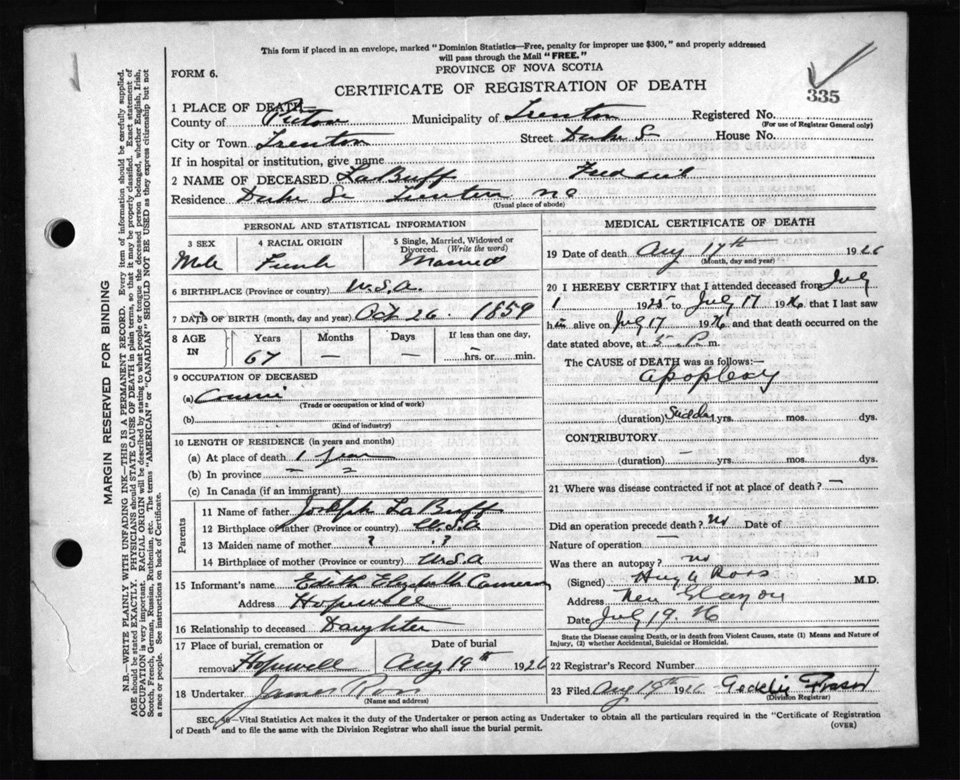 This form if placed in an envelope, marked "Dominion Statistics—Free, penalty for improper use $300," and properly addressed
will pass through the Mail "FREE."
FORM 6.
PROVINCE OF NOVA SCOTIA
CERTIFICATE OF REGISTRATION OF DEATH
335
1 PLACE OF DEATH
County of Pictou Municipality of Trenton Registered No.
(For use of Registrar General only)
City or Town Trenton Street Duke St House No.
If in hospital or institution, give name
2 NAME OF DECEASED LaBuff Fredrick
Residence Duke St Trenton NS
(Usual place of abode)
PERSONAL AND STATISTICAL INFORMATION
3 SEX 4 RACIAL ORIGIN 5 Single, Married, Widowed or
Divorced. (Write the word)
Male French Married
6 BIRTHPLACE (Province or country) U.S.A.
7 DATE OF BIRTH (month, day and year) Oct 26. 1859
8 AGE IN Years Months Days If less than one day,
67 — — hrs. or min.
9 OCCUPATION OF DECEASED
(a)
(Trade or occupation or kind of work)
(b)
(Kind of industry)
10 LENGTH OF RESIDENCE (in years and months)
(a) At place of death 1 year
(b) In province
(c) In Canada (if an immigrant)
Parents
11 Name of father Joseph LaBuff
12 Birthplace of father (Province or country) U.S.A
13 Maiden name of mother ? . ?
14 Birthplace of mother (Province or country) U.S.A
15 Informant's name Edith Elizabeth Cameron
Address Hopewell
16 Relationship to deceased Daughter
17 Place of burial, cremation or Date of burial
removal Hopewell Aug 19th 1926
18 Undertaker James Ross
(Name and address)
MEDICAL CERTIFICATE OF DEATH
19 Date of death Aug 17th 1926
(Month, day and year)
20 I HEREBY CERTIFY that I attended deceased from July
1 1925 to July 17 1926, that I last saw
him alive on July 17 1926, and that death occurred on
date stated above, at 5 P. m.
The CAUSE of DEATH was as follows:—
Apoplexy
(duration) Sudden yrs. mos. dys.
CONTRIBUTORY
(duration) — yrs. mos. dys.
21 Where was disease contracted if not at place of death? —
Did an operation precede death? No Date of
Nature of operation —
Was there an autopsy? no
(Signed) Hugh Ross M.D.
Address New Glasgow
Date July 19. 26
State the Disease causing Death, or in death from Violent Causes, state (1) Means and Nature of
Injury, (2) whether Accidental, Suicidal or Homicidal.
22 Registrar's Record Number
23 Filed Aug 19th 1926 Geddie Fraser
(Division Registrar)
SEC. 36—Vital Statistics Act makes it the duty of the Undertaker or person acting as Undertaker to obtain all the particulars required in the "Certificate of Registration
of Death" and to file the same with the Division Registrar who shall issue the burial permit.
(OVER)
MARGIN RESERVED FOR BINDING
N.B.—WRITE PLAINLY WITH UNFADING INK—THIS IS A PERMANENT RECORD. Every item of information should be carefully supplied.
AGE should be stated EXACTLY. PHYSICIANS should STATE CAUSE OF DEATH in plain terms, so that it may be properly classified. Exact statement of
OCCUPATION is very important. RACIAL ORIGIN will be described by stating to what people or tongue the deceased person belonged, whether English, Irish,
Scotch, French, German, Russian, Ruthenian, etc. The terms "AMERICAN" or "CANADIAN" SHOULD NOT BE USED as they express citizenship but not
a race or people. See instructions on back of Certificate.